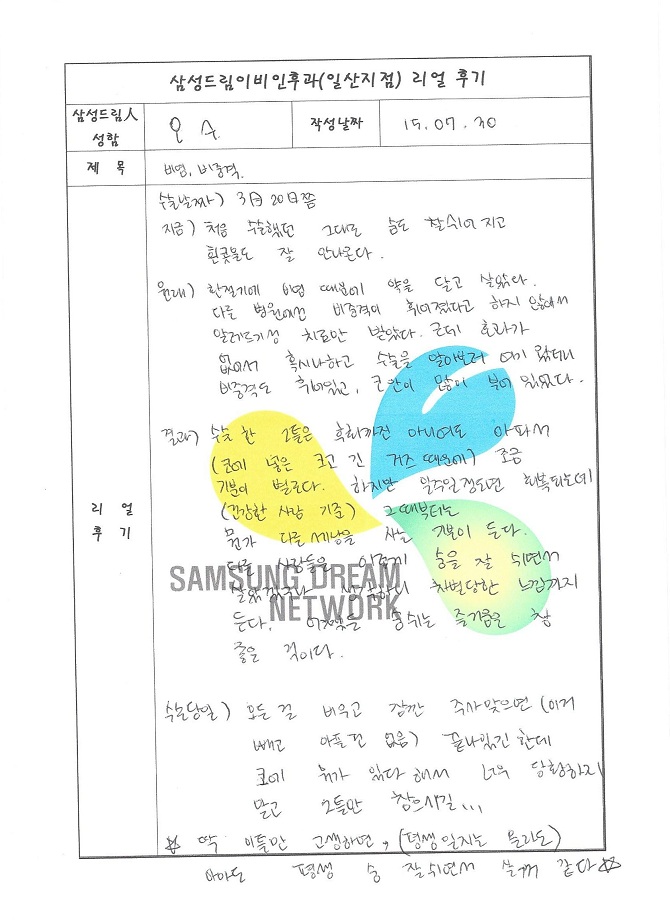 삼성드림이비인후과(일산지점) 리얼 후기
삼성드림人
성함
작성날짜
15.07.30
제 목
비염, 비중격.
수술날짜) 3月 20日쯤
지금) 처음 수술했던 그대로 숨도 잘쉬어지고
흰콧물도 잘 안나온다.
원래) 환절기에 비염 때문에 약을 달고 살았다.
다른 병원에선 비중격이 휘어졌다고 하지 않아서
알레르기성 치료만 받았다. 근데 효과가
없어서 혹시나하고 수술을 알아보러 여기 왔더니
비중격도 휘어있고, 코안이 많이 부어 있었다.
결과) 수술 한 2틀은 후회까진 아니여도 아파서
(코에 넣은 크고 긴 거즈 때문에) 조금
기분이 별로다. 하지만 일주일 정도면 회복되는데
(건강한 사람 기준) 그때부터는
뭔가 다른세상을 사는 기분이 든다.
다른 사람들은 이렇게 숨을 잘 쉬면서
살았겠구나 생각하니 차별당한 느낌까지
든다. 어쨌든 숨쉬는 즐거움은 참
좋은 것이다.
리 얼
후 기
SAMSUNG DREAM
NETWORK
수술당일) 모든 걸 비우고 잠깐 주사맞으면 (이거
빼고 아플 건 없음) 끝나있긴 한데
코에 뭐가 있다 해서 너무 당황하지
말고 2틀만 참으시길...
☆ 딱 이틀만 고생하면, (평생일지는 몰라도)
아마도 평생 숨 잘쉬면서 살꺼 같다☆